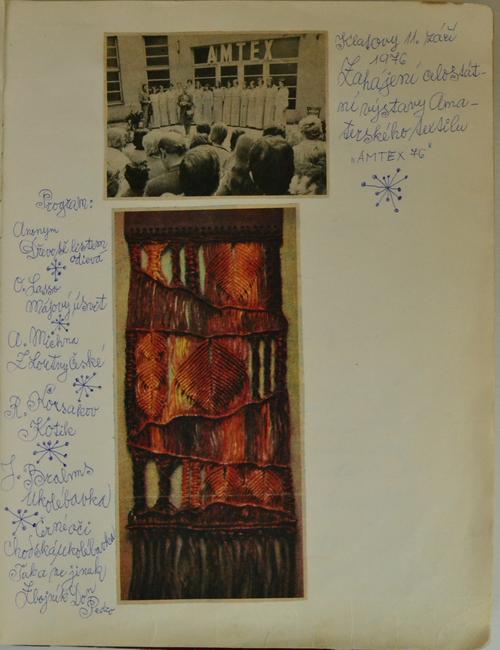 AMTEX
Klatovy 11. září
1976
Zahájení celostát-
ní výstavy Ama-
terského textilu
„AMTEX 76"
Program:
Anonym
Dřevo sě listem
odievá
O. Lasso
Májový úsvit
A. Michna
Z Loutny České
R. Korsakov
Kotík
J. Brahms
Ukolébavka
Černé oči
Chodská ukolébavka
Tak a ne jinak
Zbojník Don
Pedro